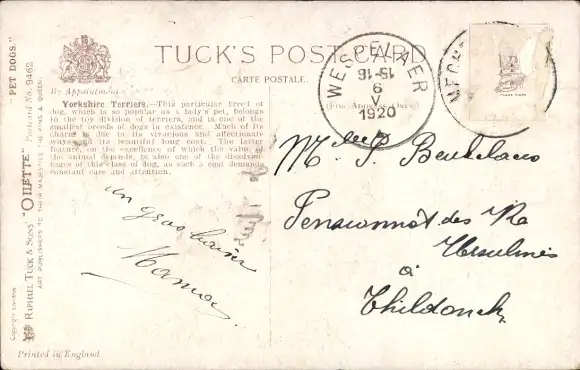 TUCK'S POST CARD
CARTE POSTALE.
By Appointment
(For Address Only)
Yorkshire Terriers.—This particular breed of
dog, which is so popular as a lady's pet, belongs
to the toy division of terriers, and is one of the
smallest breeds of dogs in existence. Much of its
charm is due to its vivacious and affectionate
ways and its beautiful long coat. The latter
feature, on the excellence of which the value of
the animal depends, is also one of the disadvan-
tages of this class of dog, as such a coat demands
constant care and attention.
un gros baiser
Maman.
WESPELAER
15-16
9
1920
Mlle
Pensionnat des Rs
Ursulines
à
Thildonck
"PET DOGS."
"OILETTE" Postcard No. 9462
RAPHAEL TUCK & SONS'
ART PUBLISHERS TO THEIR MAJESTIES THE KING & QUEEN.
Printed in England